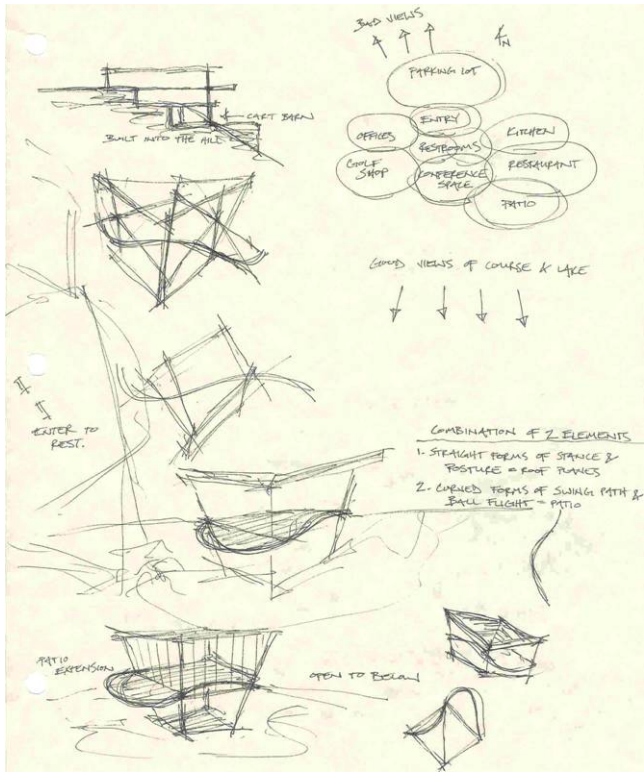 BAD VIEWS
N
PARKING LOT
ENTRY
OFFICES
RESTROOMS
KITCHEN
GOLF
SHOP
CONFERENCE
SPACE
RESTAURANT
PATIO
CART BARN
BUILT INTO THE HILL
GOOD VIEWS OF COURSE & LAKE
ENTER TO
REST.
COMBINATION OF 2 ELEMENTS
1. STRAIGHT FORMS OF STANCE &
POSTURE = ROOF PLANES
2. CURVED FORMS OF SWING PATH &
BALL FLIGHT = PATIO
PATIO
EXTENSION
OPEN TO BELOW